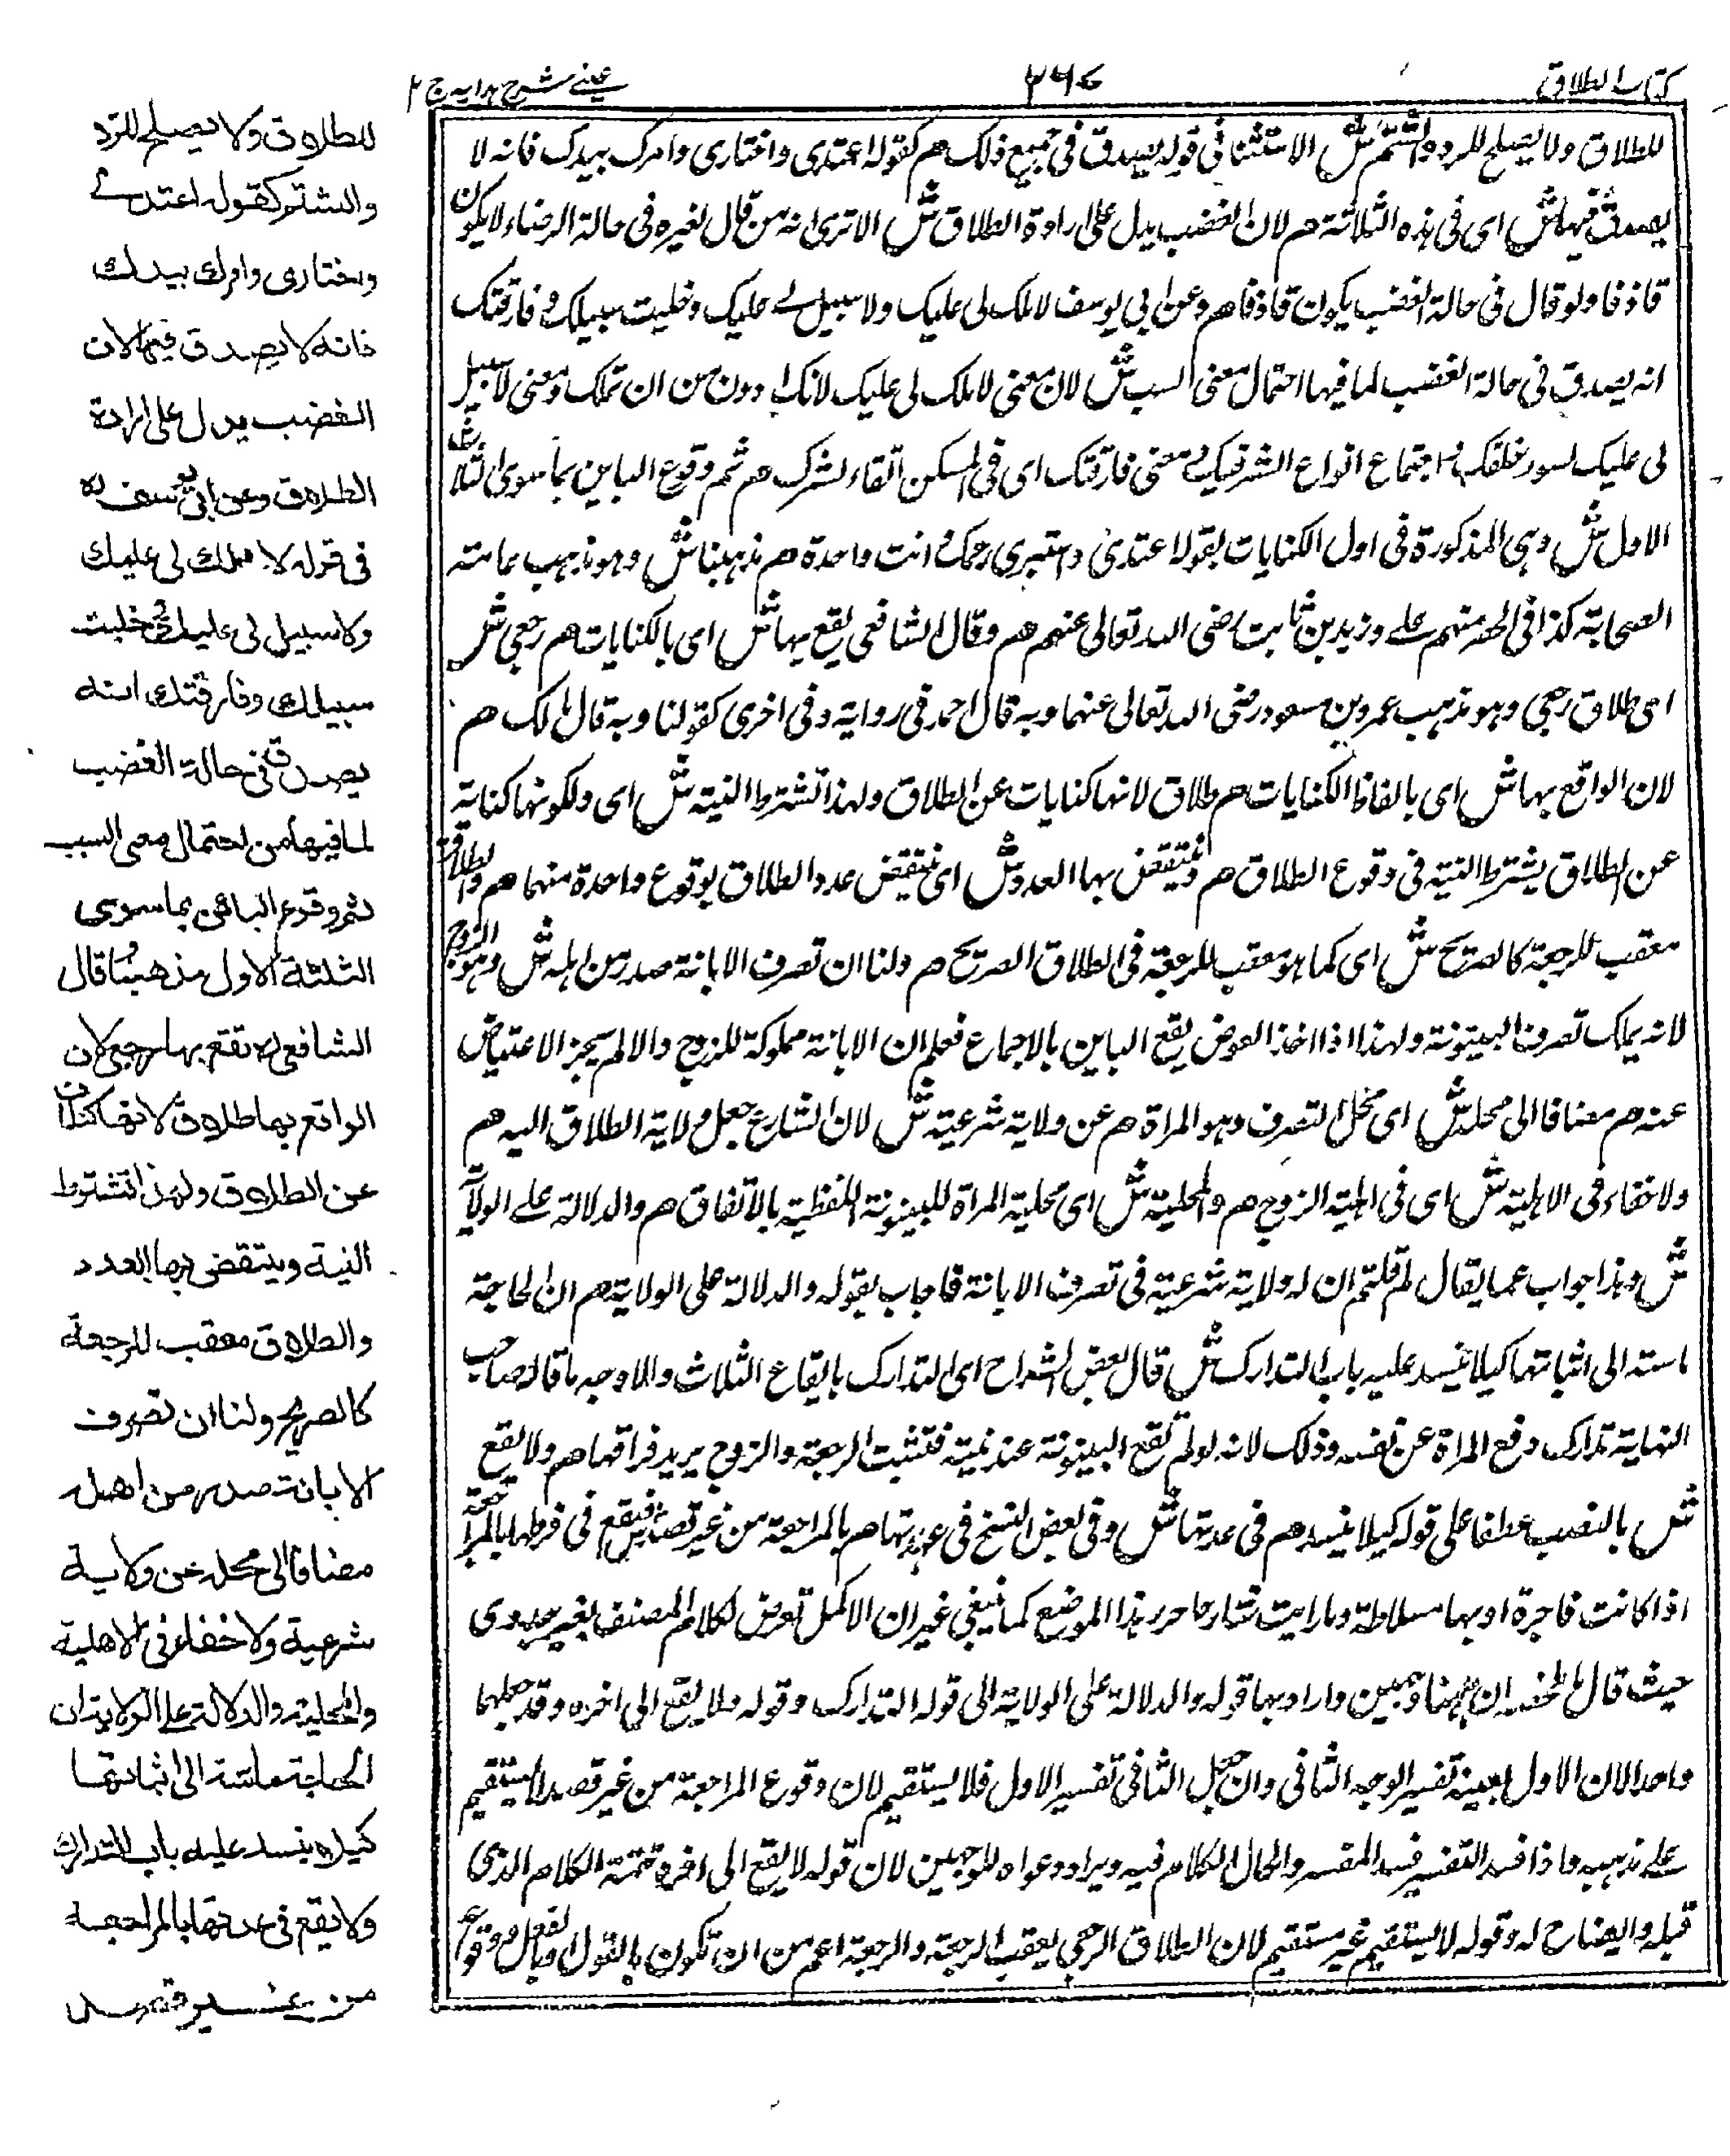 كتاب الطلاق
٣٦٧
عيني شرح هدايه ج ٢
للطلاق ولا يصلح للرد والشتم ش الاستثنا فى قوله يصدق فى جميع ذلك هم كقوله اعتدى واختارى وامرك بيدك فانه لا
يصدق فيها ش اى فى هذه الثلاثة هم لان الغضب يدل على ارادة الطلاق ش الا ترى انه من قال لغيره فى حالة الرضاء لا يكون
قاذفا ولو قال فى حالة الغضب يكون قاذفا هم وعن ابى يوسف لا ملك لى عليك ولا سبيل لے عليك وخليت سبيلك وفارقتك
انه يصدق فى حالة الغضب لما فيها احتمال معنى السب ش لان معنى لا ملك لى عليك لانك ادون من ان تملك ومعنى لا سبيل
لى عليك لسوء خلقك و اجتماع انواع الشر فيك ومعنى فارقتك اى فى المسكن اتقاء لشرك هم ثم وقوع الباين بما سوى الثلاث
الاول ش وهى المذكورة فى اول الكنايات بقوله اعتدى واستبرى رحمك وانت واحدة هم مذهبنا ش وهو مذهب عامته
الصحابة كذا فى منهم على وزيد بن ثابت رضى الله تعالى عنهم هم وقال الشافعى يقع بها ش اى بالكنايات هم رجعى ش
اى طلاق رجعى وهو مذهب عمر وبن مسعود رضى الله تعالى عنهما وبه قال احمد فى رواية وفى اخرى كقولنا وبه قال مالك هم
لان الواقع بها ش اى بالفاظ الكنايات هم طلاق لانها كنايات عن الطلاق ولهذا تشترط النية ش اى ولكونها كناية
عن الطلاق يشترط النية فى وقوع الطلاق هم وينتقض بها العدد ش اى ينتقض عدد الطلاق بوقوع واحدة منهما هم والطلاق
معقب للرجعة كالصريح ش اى كما هو معقب للرجعة فى الطلاق الصريح هم ولنا ان تصرف الابانة صدر من اهله ش وهو الزوج
لانه يملك تصرف البينونة ولهذا اذا اخذ العوض يقع الباين بالاجماع فعلم ان الابانة مملوكة للزوج والا لم يجز الاعتياض
عنه هم مضافا الى محله ش اى محل التصرف وهو المراة هم عن ولاية شرعية ش لان الشارع جعل ولاية الطلاق اليه هم
ولا خفاء فى الاهلية ش اى فى اهلية الزوج هم والمحلية ش اى محلية المراة للبينونة الغلظية بالاتفاق هم والدلالة على الولاية
ش وهذا جواب عما يقال لم قلتم ان له ولاية شرعية فى تصرف الابانة فاجاب بقوله والدلالة على الولاية هم ان الحاجة
ماسته الى اثباتها كيلا ينسد عليه باب التدارك ش قال بعض الشراح اى التدارك بايقاع الثلاث والاوجه ما قاله صاحب
النهاية تدارك دفع المراة عن نفسه وذلك لانه لو لم تقع البينونة عند نيته فتثبت الرجعة والزوج يريد فراقها هم ولا يقع
ش بالنصب عطفا على قوله كيلا ينسد هم فى عدتها ش وفى بعض النسخ فى عهدتها هم بالمراجعة من غير قصد ش فيقع فى بالمراجعة
اذا كانت فاجرة او بها سلاطة وما رايت شارحا حرر هذا الموضع كما ينبغى غير ان الاكمل تعرض لكلام المصنف بغير جدوى
حيث قال ان ههنا وجهين واراد بهما قوله والدلالة على الولاية الى قوله التدارك وقوله ولا يقع الى اخره وقد جعلهما
واحدا لان الاول بعينه تفسير الوجه الثانى وان جعل الثانى تفسير الاول فلا يستقيم لان وقوع المراجعة من غير قصد لا يستقيم
على مذهبه واذا فسد التفسير فسد المفسر والحال الكلام فيه ويراد دعواه للوجهين لان قوله لا يقع الى اخره تتمة الكلام الذى
قبله وايضاح له وقوله لا يستقيم غير مستقيم لان الطلاق الرجعى يعقب الرجعة والرجعة اعم من ان تكون بالقول او بالفعل ووقوع
للطلاق ولا يصلح للرد
والشتم كقوله اعتدے
واختارى وامرك بيدك
فانه لا يصدق فيها لان
الغضب يدل على ارادة
الطلاق وعن ابى يوسف رہ
فى قوله لا ملك لى عليك
ولا سبيل لى عليك وخليت
سبيلك وفارقتك انه
يصدق فى حالة الغضب
لما فيها من احتمال معنى السب
ثم وقوع البائن بما سوى
الثلثة الاول مذهبنا وقال
الشافعى رہ تقع بها رجعى لان
الواقع بها طلاق لانها كنايات
عن الطلاق ولهذا تشترط
النية وينتقض بها العدد
والطلاق معقب للرجعة
كالصريح ولنا ان تصرف
الابانة صدر من اهله
مضافا الى محله عن ولاية
شرعية ولا خفاء فى الاهلية
والمحلية والدلالة على الولاية ان
الحاجة ماسة الى اثباتها
كيلا ينسد عليه باب التدارك
ولا يقع فى عدتها بالمراجعة
من غير قصد